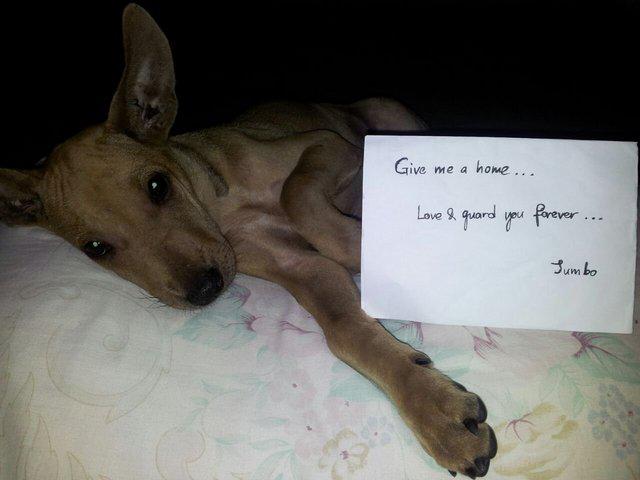 Give me a home...
Love & guard you forever...
Jumbo